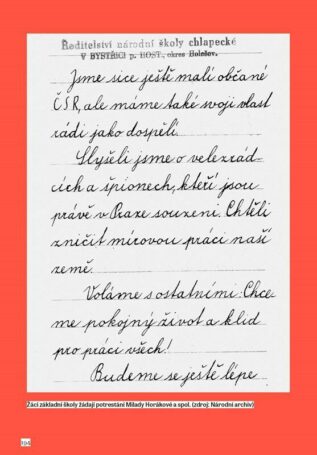 Ředitelství národní školy chlapecké
V BYSTŘICI p. HOST., okres Holešov.
Jsme sice ještě malí občané
ČSR, ale máme také svoji vlast
rádi jako dospělí.
Slyšeli jsme o velezrád-
cích a špionech, kteří jsou
právě v Praze souzeni. Chtěli
zničit mírovou práci naší
země.
Voláme s ostatními: Chce-
me pokojný život a klid
pro práci všech!
Budeme se ještě lépe
Žáci základní školy žádají potrestání Milady Horákové a spol. (zdroj: Národní archiv)
104